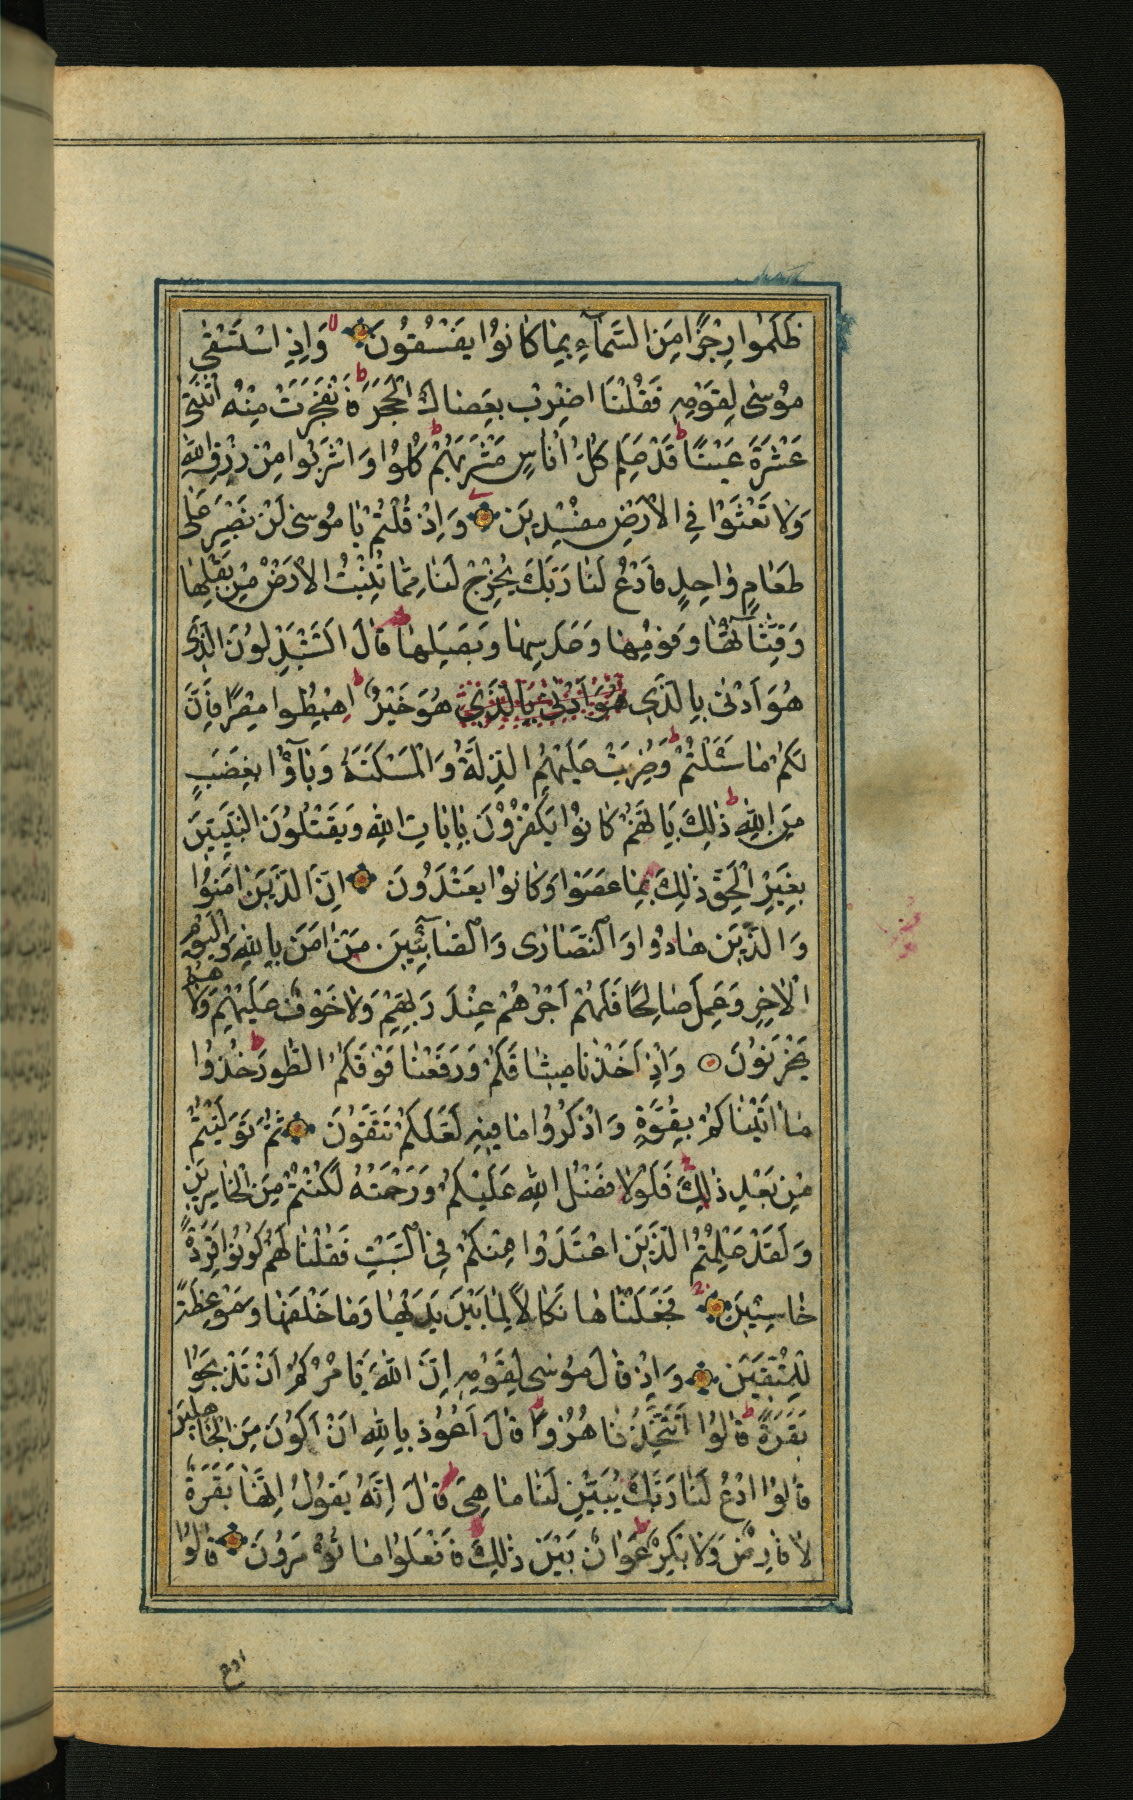 ظَلَمُوا رِجْزًا مِنَ السَّمَآءِ بِمَا كَانُوا يَفْسُقُونَ وَاِذِ اسْتَسْقٰى
مُوسٰى لِقَوْمِهِ فَقُلْنَا اضْرِبْ بِعَصَاكَ الْحَجَرَ فَانْفَجَرَتْ مِنْهُ اثْنَتٰى
عَشْرَةَ عَيْنًا قَدْ عَلِمَ كُلُّ اُنَاسٍ مَشْرَبَهُمْ كُلُوا وَاشْرَبُوا مِنْ رِزْقِ اللّٰهِ
وَلَا تَعْثَوْا فِي الْاَرْضِ مُفْسِدِينَ وَاِذْ قُلْتُمْ يَا مُوسٰى لَنْ نَصْبِرَ عَلٰى
طَعَامٍ وَاحِدٍ فَادْعُ لَنَا رَبَّكَ يُخْرِجْ لَنَا مِمَّا تُنْبِتُ الْاَرْضُ مِنْ بَقْلِهَا
وَقِثَّآئِهَا وَفُومِهَا وَعَدَسِهَا وَبَصَلِهَا قَالَ اَتَسْتَبْدِلُونَ الَّذِى
هُوَ اَدْنٰى بِالَّذِى هُوَ اَدْنٰى بِالَّذِى هُوَ خَيْرٌ اِهْبِطُوا مِصْرًا فَاِنَّ
لَكُمْ مَا سَئَلْتُمْ وَضُرِبَتْ عَلَيْهِمُ الذِّلَّةُ وَالْمَسْكَنَةُ وَبَآؤُا بِغَضَبٍ
مِنَ اللّٰهِ ذٰلِكَ بِاَنَّهُمْ كَانُوا يَكْفُرُونَ بِاٰيَاتِ اللّٰهِ وَيَقْتُلُونَ النَّبِيّينَ
بِغَيْرِ الْحَقِّ ذٰلِكَ بِمَا عَصَوْا وَكَانُوا يَعْتَدُونَ اِنَّ الَّذِينَ اٰمَنُوا
وَالَّذِينَ هَادُوا وَالنَّصَارٰى وَالصَّابِئِينَ مَنْ اٰمَنَ بِاللّٰهِ وَالْيَوْمِ
الْاٰخِرِ وَعَمِلَ صَالِحًا فَلَهُمْ اَجْرُهُمْ عِنْدَ رَبِّهِمْ وَلَا خَوْفٌ عَلَيْهِمْ وَلَا هُمْ
يَحْزَنُونَ وَاِذْ اَخَذْنَا مِيثَاقَكُمْ وَرَفَعْنَا فَوْقَكُمُ الطُّورَ خُذُوا
مَا اٰتَيْنَاكُمْ بِقُوَّةٍ وَاذْكُرُوا مَا فِيهِ لَعَلَّكُمْ تَتَّقُونَ ثُمَّ تَوَلَّيْتُمْ
مِنْ بَعْدِ ذٰلِكَ فَلَوْلَا فَضْلُ اللّٰهِ عَلَيْكُمْ وَرَحْمَتُهُ لَكُنْتُمْ مِنَ الْخَاسِرِينَ
وَلَقَدْ عَلِمْتُمُ الَّذِينَ اعْتَدَوْا مِنْكُمْ فِي السَّبْتِ فَقُلْنَا لَهُمْ كُونُوا قِرَدَةً
خَاسِئِينَ فَجَعَلْنَاهَا نَكَالًا لِمَا بَيْنَ يَدَيْهَا وَمَا خَلْفَهَا وَمَوْعِظَةً
لِلْمُتَّقِينَ وَاِذْ قَالَ مُوسٰى لِقَوْمِهِ اِنَّ اللّٰهَ يَامُرُكُمْ اَنْ تَذْبَحُوا
بَقَرَةً قَالُوا اَتَتَّخِذُنَا هُزُوًا قَالَ اَعُوذُ بِاللّٰهِ اَنْ اَكُونَ مِنَ الْجَاهِلِينَ
قَالُوا ادْعُ لَنَا رَبَّكَ يُبَيِّنْ لَنَا مَا هِىَ قَالَ اِنَّهُ يَقُولُ اِنَّهَا بَقَرَةٌ
لَا فَارِضٌ وَلَا بِكْرٌ عَوَانٌ بَيْنَ ذٰلِكَ فَافْعَلُوا مَا تُؤْمَرُونَ قَالُوا
ادع